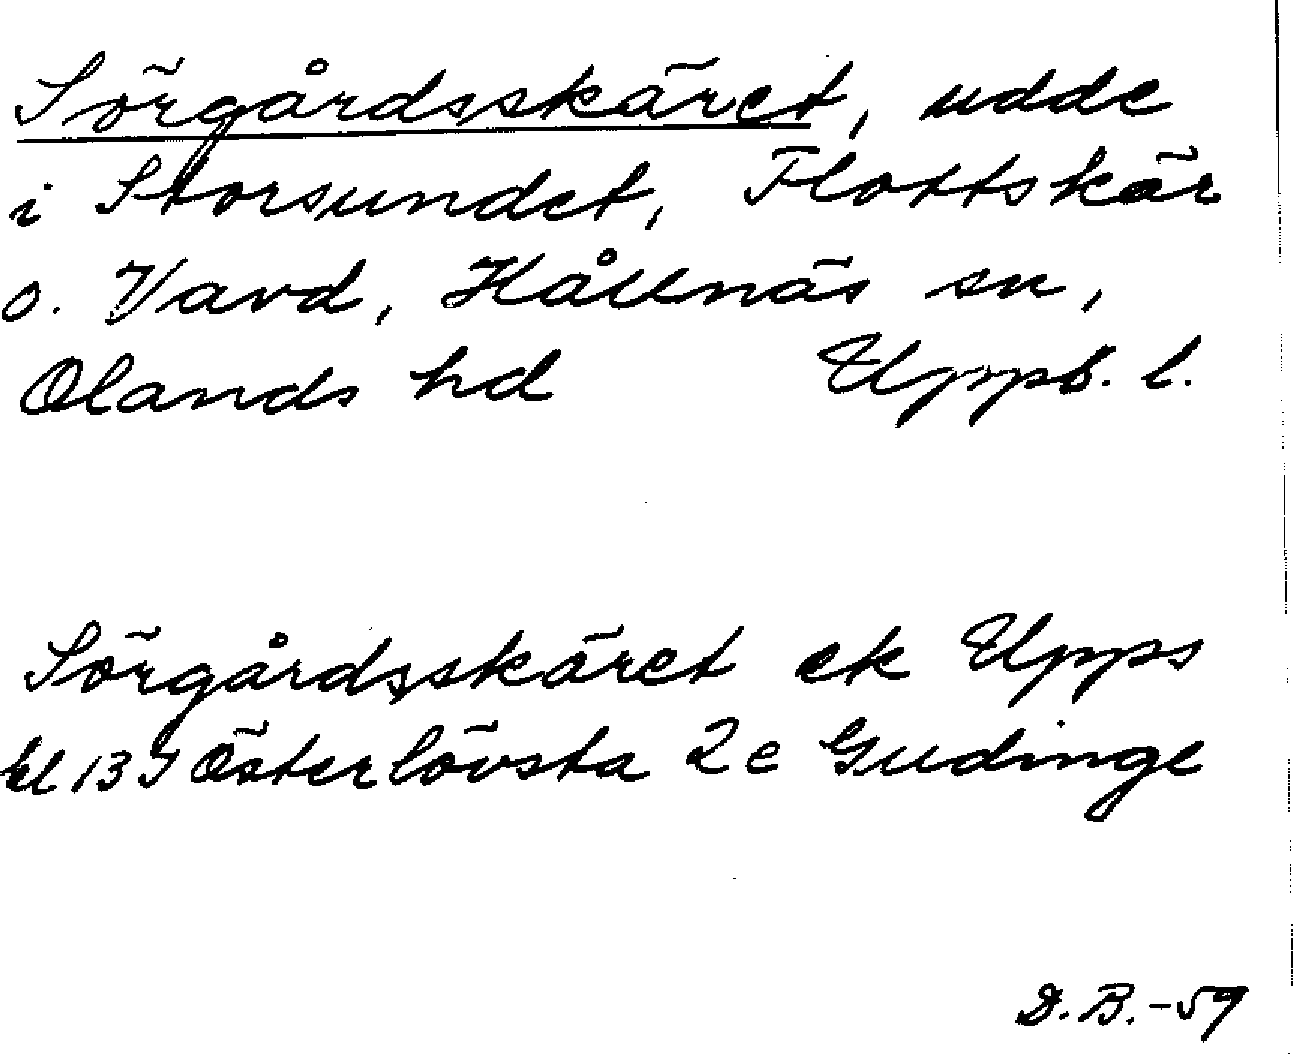 Sörgårdsskäret, udde
i Storsundet, Flottskär
o. Vavd, Hållnäs sn,
Olands hd Uppb. l.
Sörgårdsskäret ek Upps
bl 13 I Österlövsta 2 e Gudinge
D.B.-59